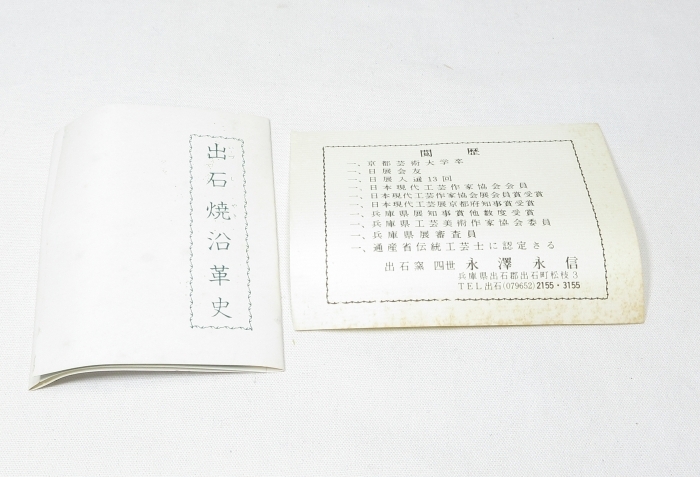 出石焼沿革史
閲歴
一、京都芸術大学卒
一、日展会友
一、日展入選13回
一、日本現代工芸作家協会会員
一、日本現代工芸作家協会展会員賞受賞
一、日本現代工芸展京都府知事賞受賞
一、兵庫県展知事賞他数度受賞
一、兵庫県工芸美術作家協会委員
一、兵庫県展審査員
一、通産省伝統工芸士に認定さる
出石窯 四世 永澤永信
兵庫県出石郡出石町松枝3
TEL出石(079652)2155・3155